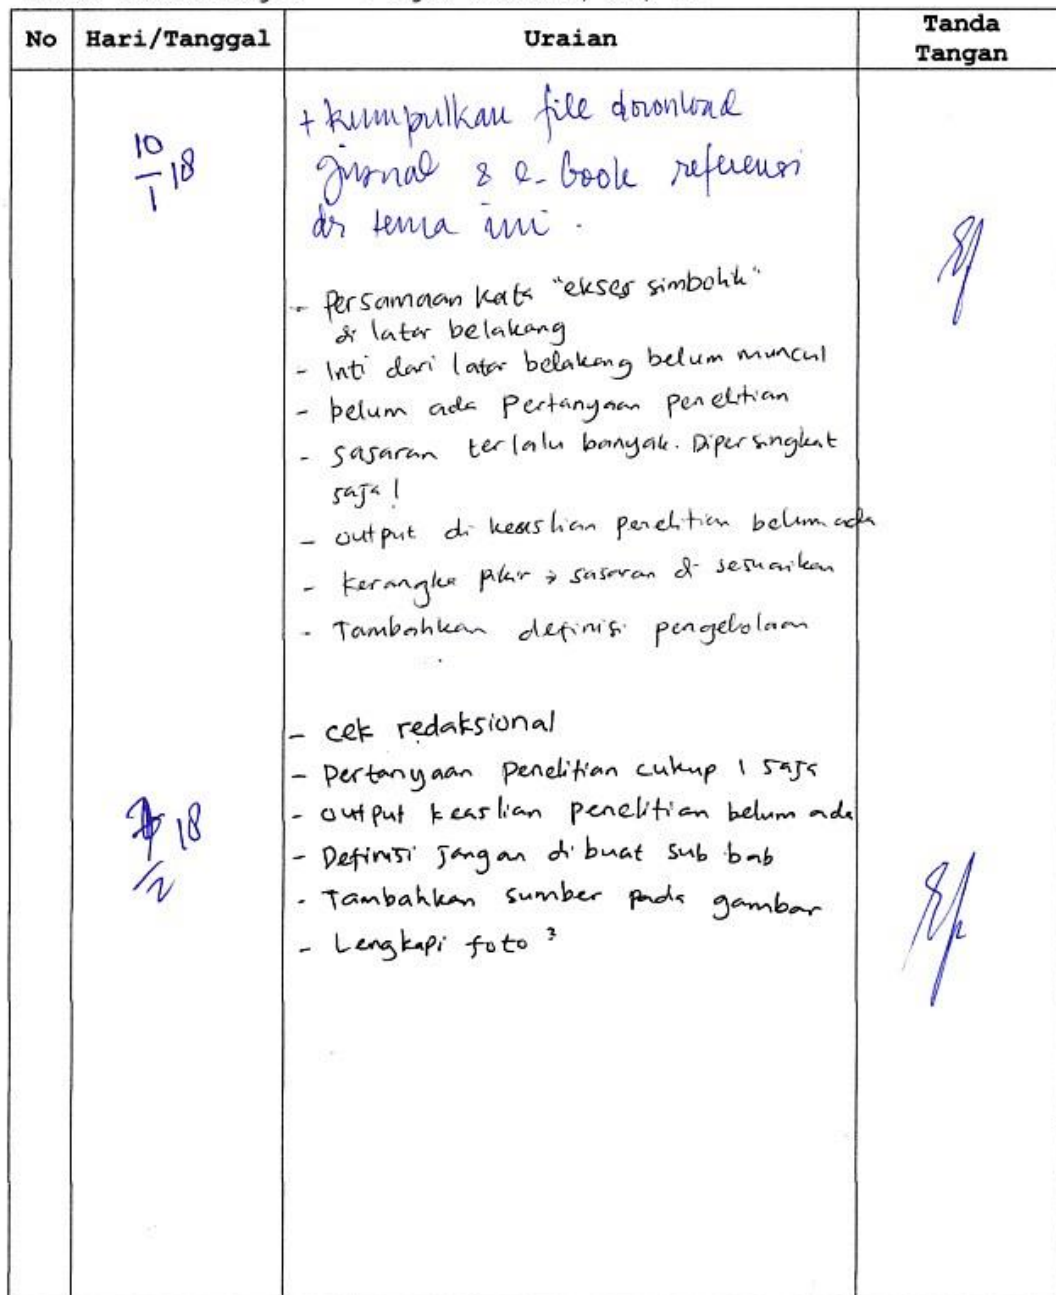 No Hari/Tanggal Uraian Tanda Tangan
10/1 18
+ kumpulkan file download
jurnal & e-book referensi
dr tema ini.
- Persamaan kata "ekses simbolik"
di latar belakang
- Inti dari latar belakang belum muncul
- belum ada Pertanyaan penelitian
- sasaran terlalu banyak. Dipersingkat
saja!
- output di keaslian penelitian belum ada
- kerangka pikir → sasaran di sesuaikan
- Tambahkan definisi pengelolaan
- cek redaksional
- Pertanyaan Penelitian cukup 1 saja
- output keaslian penelitian belum ada
/2 18
- Definisi jangan di buat sub bab
- Tambahkan sumber pada gambar
- Lengkapi foto²